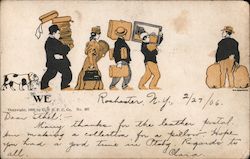 WE
Copyright, 1905 by
Co. No.
Rochester N.Y. 2/27/06.
Dear Ethel:-
Many thanks for the leather postal.
Am making a collection for a pillow. Hope
you had a good time in Regards to
all. Clara